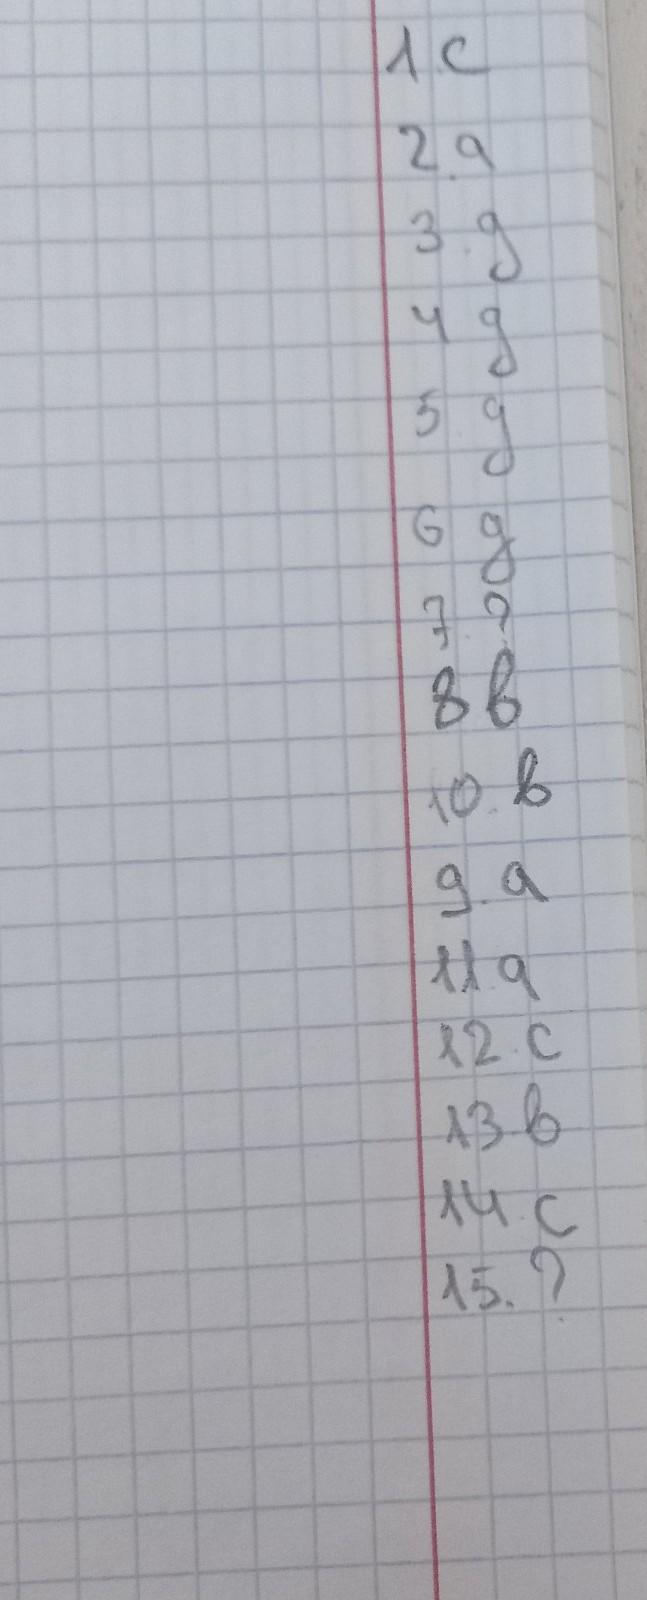 1 c
2. a
3. g
4 g
5 g
6 g
7. ?
8 b
10. b
9. a
11 a
12. c
13 b
14. c
15. ?